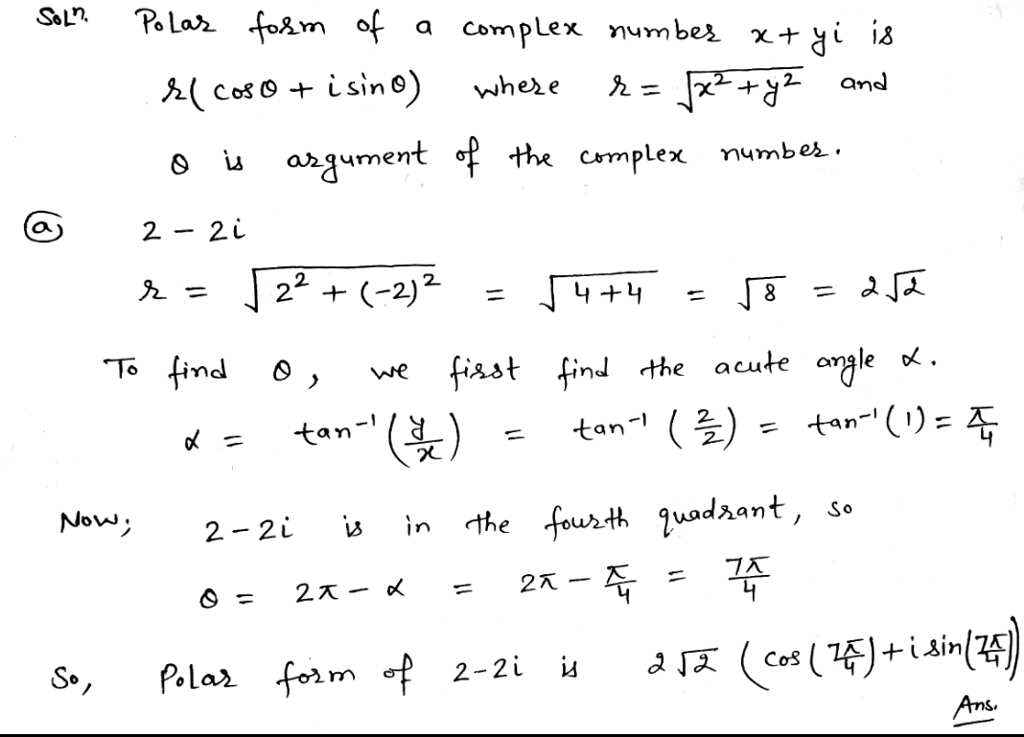 Soln. Polar form of a complex number x + yi is
r( cosθ + i sinθ) where r = √x² + y² and
θ is argument of the complex number.
(a) 2 - 2i
r = √2² + (-2)² = √4+4 = √8 = 2√2
To find θ, we first find the acute angle α.
α = tan⁻¹(y/x) = tan⁻¹(2/2) = tan⁻¹(1) = π/4
Now; 2-2i is in the fourth quadrant, so
θ = 2π - α = 2π - π/4 = 7π/4
So, Polar form of 2-2i is 2√2 (cos(7π/4)+i sin(7π/4))
Ans.